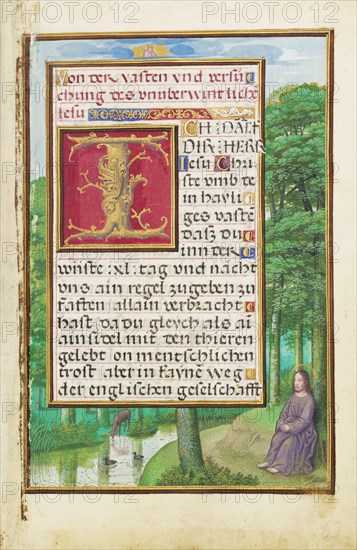 Von der vasten vnd versu
chung des vnuberwintlichē
iesu
ICH DANCK
DIR HERR
Iesu Chri
ste vmb dē
in hayli
ges vastē
dasz du
inn der
wuste :xl: tag vnd nacht
vns ain regel zugeben zu
fasten allain verbracht
hast da du gleych als ain
ainsidel mit den thieren
gelebt on mentschlichen
trost aber in kayne weg
der englischen geselschafft